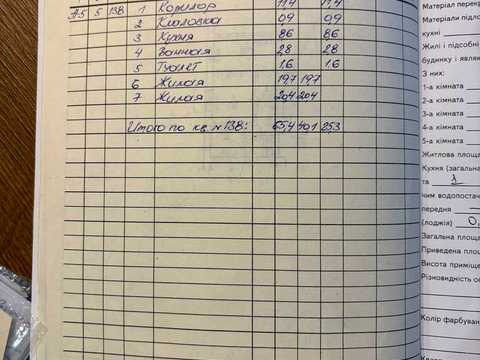 А-5 5 138 1 Коридор 11,4 11,4
2 Кладовка 0,9 0,9
3 Кухня 8,6 8,6
4 Ванная 2,8 2,8
5 Туалет 1,6 1,6
6 Жилая 19,7 19,7
7 Жилая 20,4 20,4
Итого по кв. №138: 65,4 40,1 25,3
Матеріал перек
Матеріали підло
кухні
Жилі і підсобні
будинку і являю
З них:
1-а кімната
2-а кімната
3-а кімната
4-а кімната
5-а кімната
Житлова площа
Кухня (загальна
та 1
чим водопостач
передня
(лоджія) 0,
Загальна площа
Приведена площ
Висота приміще
Різновидність об
Колір фарбуван